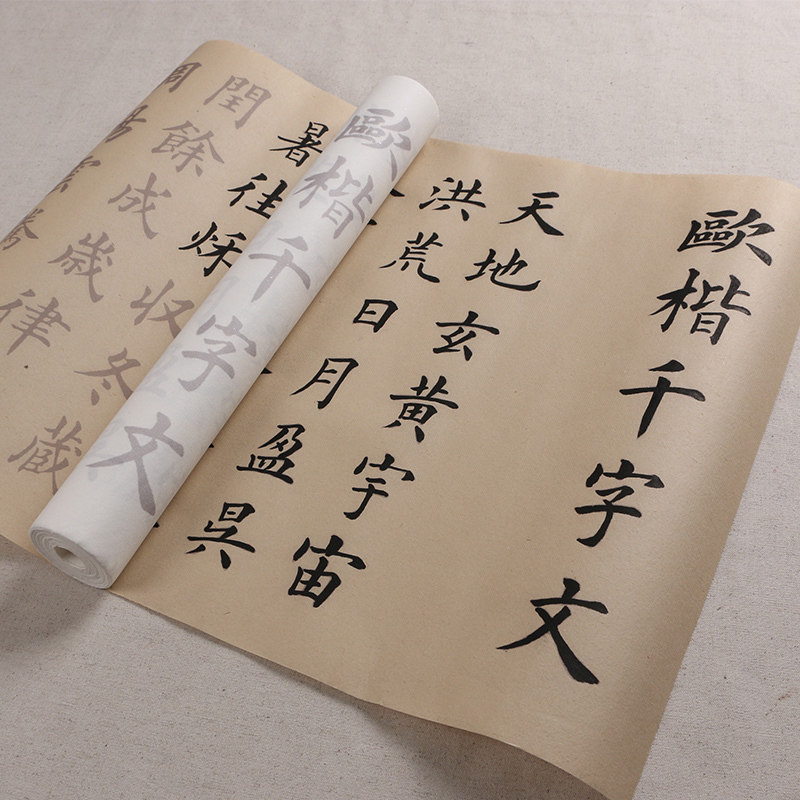 歐楷千字文
天地玄黄宇宙
洪荒日月盈昃
歐楷千字文
暑往秌收冬藏
閏餘成歲律